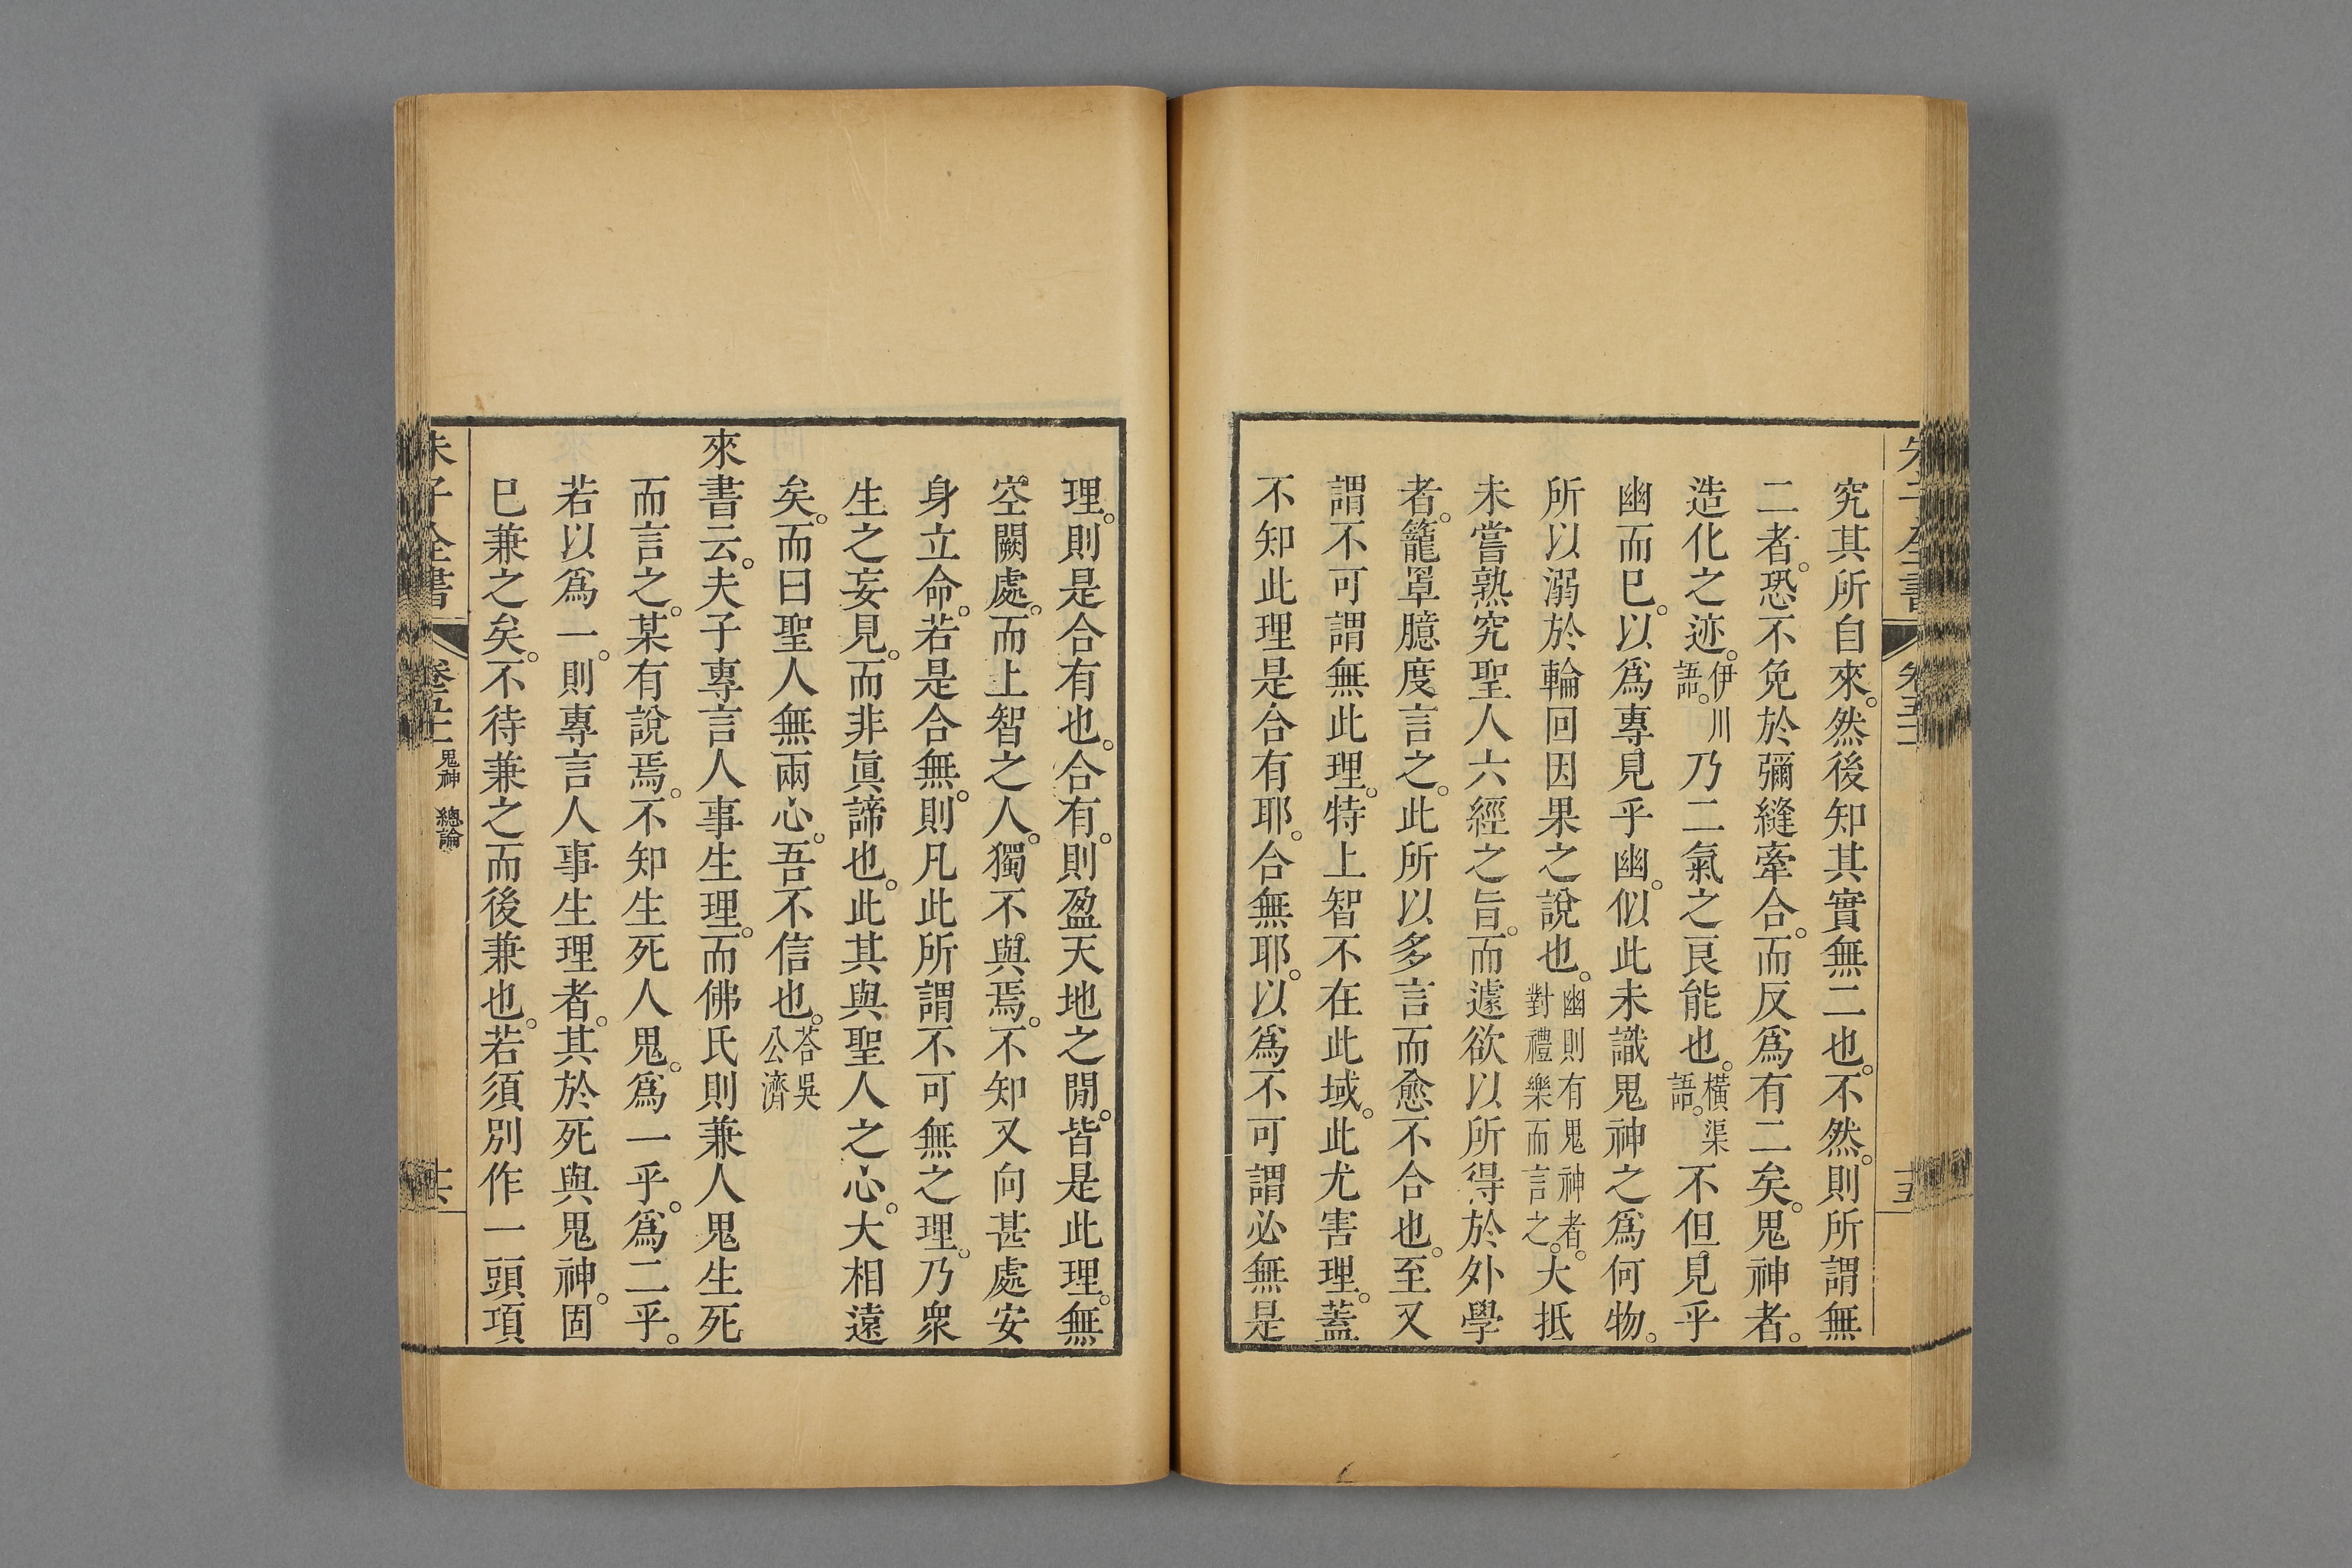 究其所自來。然後知其實無二也。不然。則所謂無
二者。恐不免於彌縫牽合。而反爲有二矣。鬼神者。
造化之迹。伊川語。乃二氣之良能也。橫渠語。不但見乎
幽而已。以爲專見乎幽。似此未識鬼神之爲何物。
所以溺於輪回因果之說也。幽則有鬼神者。對禮樂而言之。大抵
未嘗熟究聖人六經之旨。而遽欲以所得於外學
者。籠罩臆度言之。此所以多言而愈不合也。至又
謂不可謂無此理。特上智不在此域。此尤害理。蓋
不知此理是合有耶。合無耶。以爲不可謂必無是
理。則是合有也。合有。則盈天地之閒。皆是此理。無
空闕處。而上智之人。獨不與焉。不知又向甚處安
身立命。若是合無。則凡此所謂不可無之理。乃衆
生之妄見。而非眞諦也。此其與聖人之心。大相遠
矣。而曰聖人無兩心。吾不信也。荅吳公濟
來書云。夫子專言人事生理。而佛氏則兼人鬼生死
而言之。某有說焉。不知生死人鬼。爲一乎。爲二乎。
若以爲一。則專言人事生理者。其於死與鬼神。固
已兼之矣。不待兼之而後兼也。若須別作一頭項
朱子全書
鬼神 總論